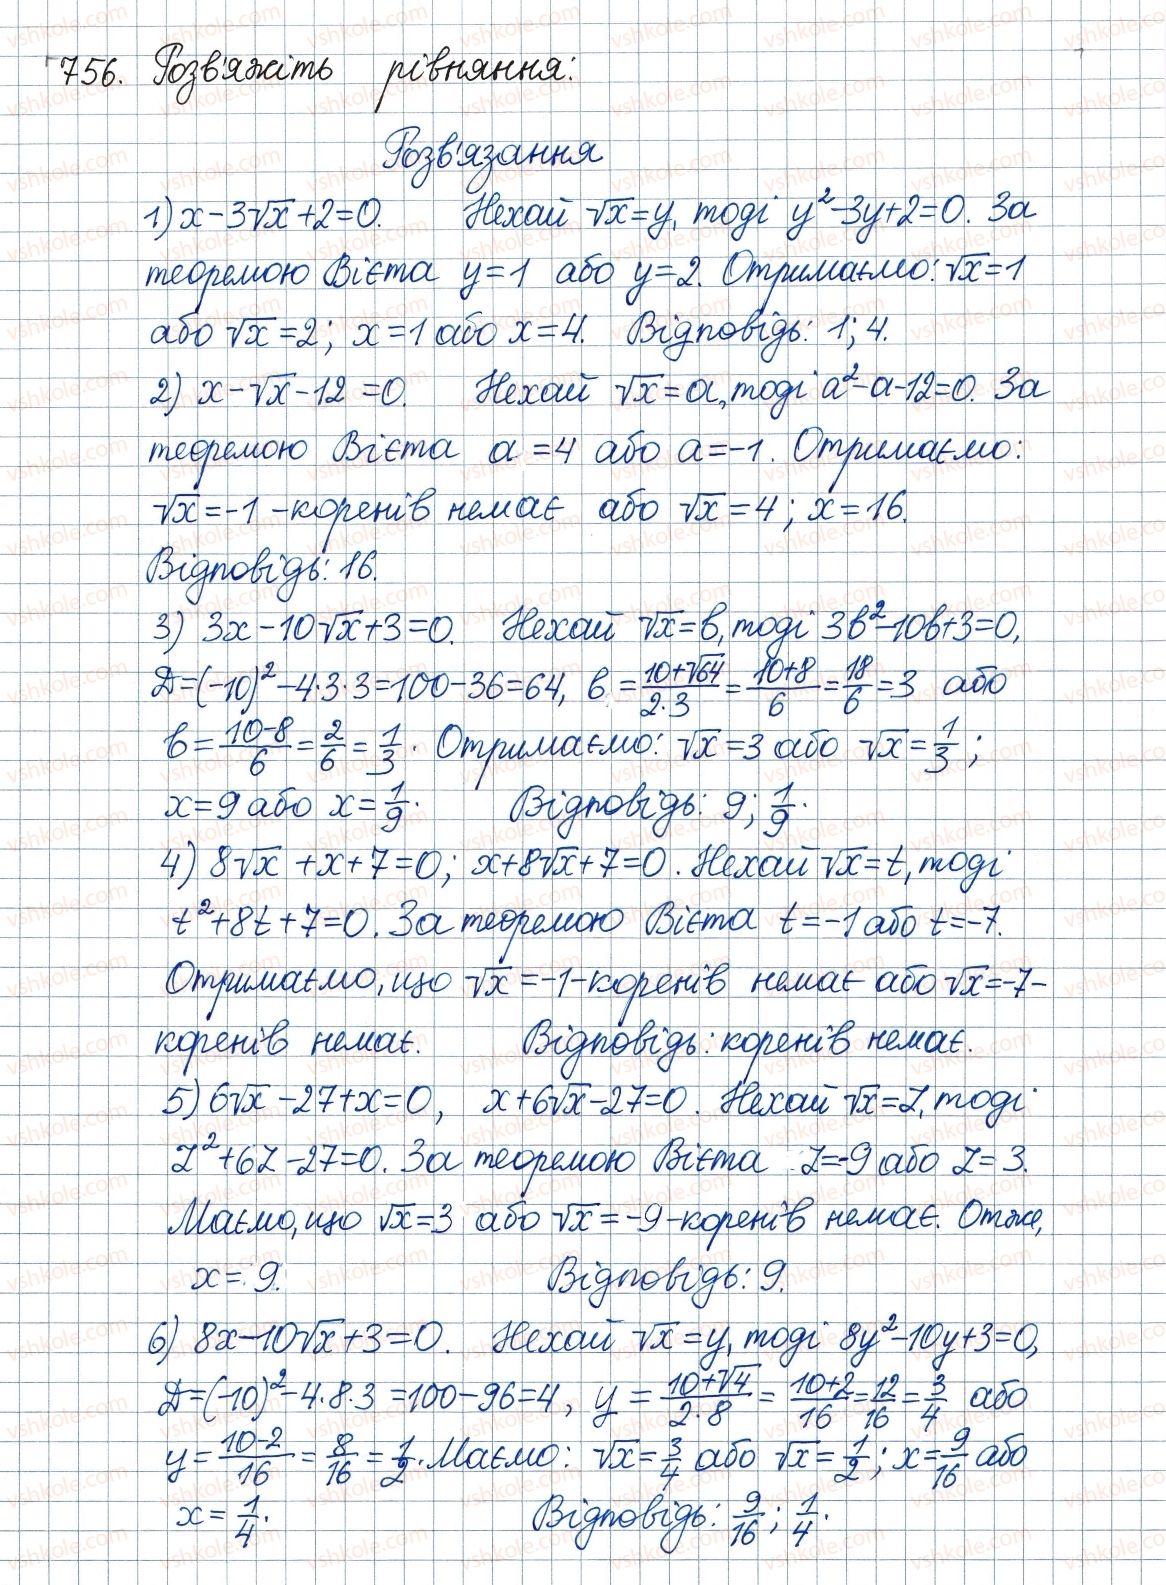 756. Розв'яжіть рівняння:
Розв'язання
1) x-3√x+2=0. Нехай √x=y, тоді y²-3y+2=0. За
теоремою Вієта y=1 або y=2. Отримаємо: √x=1
або √x=2; x=1 або x=4. Відповідь: 1; 4.
2) x-√x-12=0. Нехай √x=a, тоді a²-a-12=0. За
теоремою Вієта a=4 або a=-1. Отримаємо:
√x=-1 - коренів немає або √x=4; x=16.
Відповідь: 16.
3) 3x-10√x+3=0. Нехай √x=b, тоді 3b²-10b+3=0,
Д=(-10)²-4·3·3=100-36=64, b=(10+√64)/(2·3)=(10+8)/6=18/6=3 або
b=(10-8)/6=2/6=1/3. Отримаємо: √x=3 або √x=1/3;
x=9 або x=1/9. Відповідь: 9; 1/9.
4) 8√x+x+7=0; x+8√x+7=0. Нехай √x=t, тоді
t²+8t+7=0. За теоремою Вієта t=-1 або t=-7.
Отримаємо, що √x=-1 - коренів немає або √x=-7 -
коренів немає. Відповідь: коренів немає.
5) 6√x-27+x=0, x+6√x-27=0. Нехай √x=z, тоді
z²+6z-27=0. За теоремою Вієта z=-9 або z=3.
Маємо, що √x=3 або √x=-9 - коренів немає. Отже,
x=9. Відповідь: 9.
6) 8x-10√x+3=0. Нехай √x=y, тоді 8y²-10y+3=0,
Д=(-10)²-4·8·3=100-96=4, y=(10+√4)/(2·8)=(10+2)/16=12/16=3/4 або
y=(10-2)/16=8/16=1/2. Маємо: √x=3/4 або √x=1/2; x=9/16 або
x=1/4. Відповідь: 9/16; 1/4.